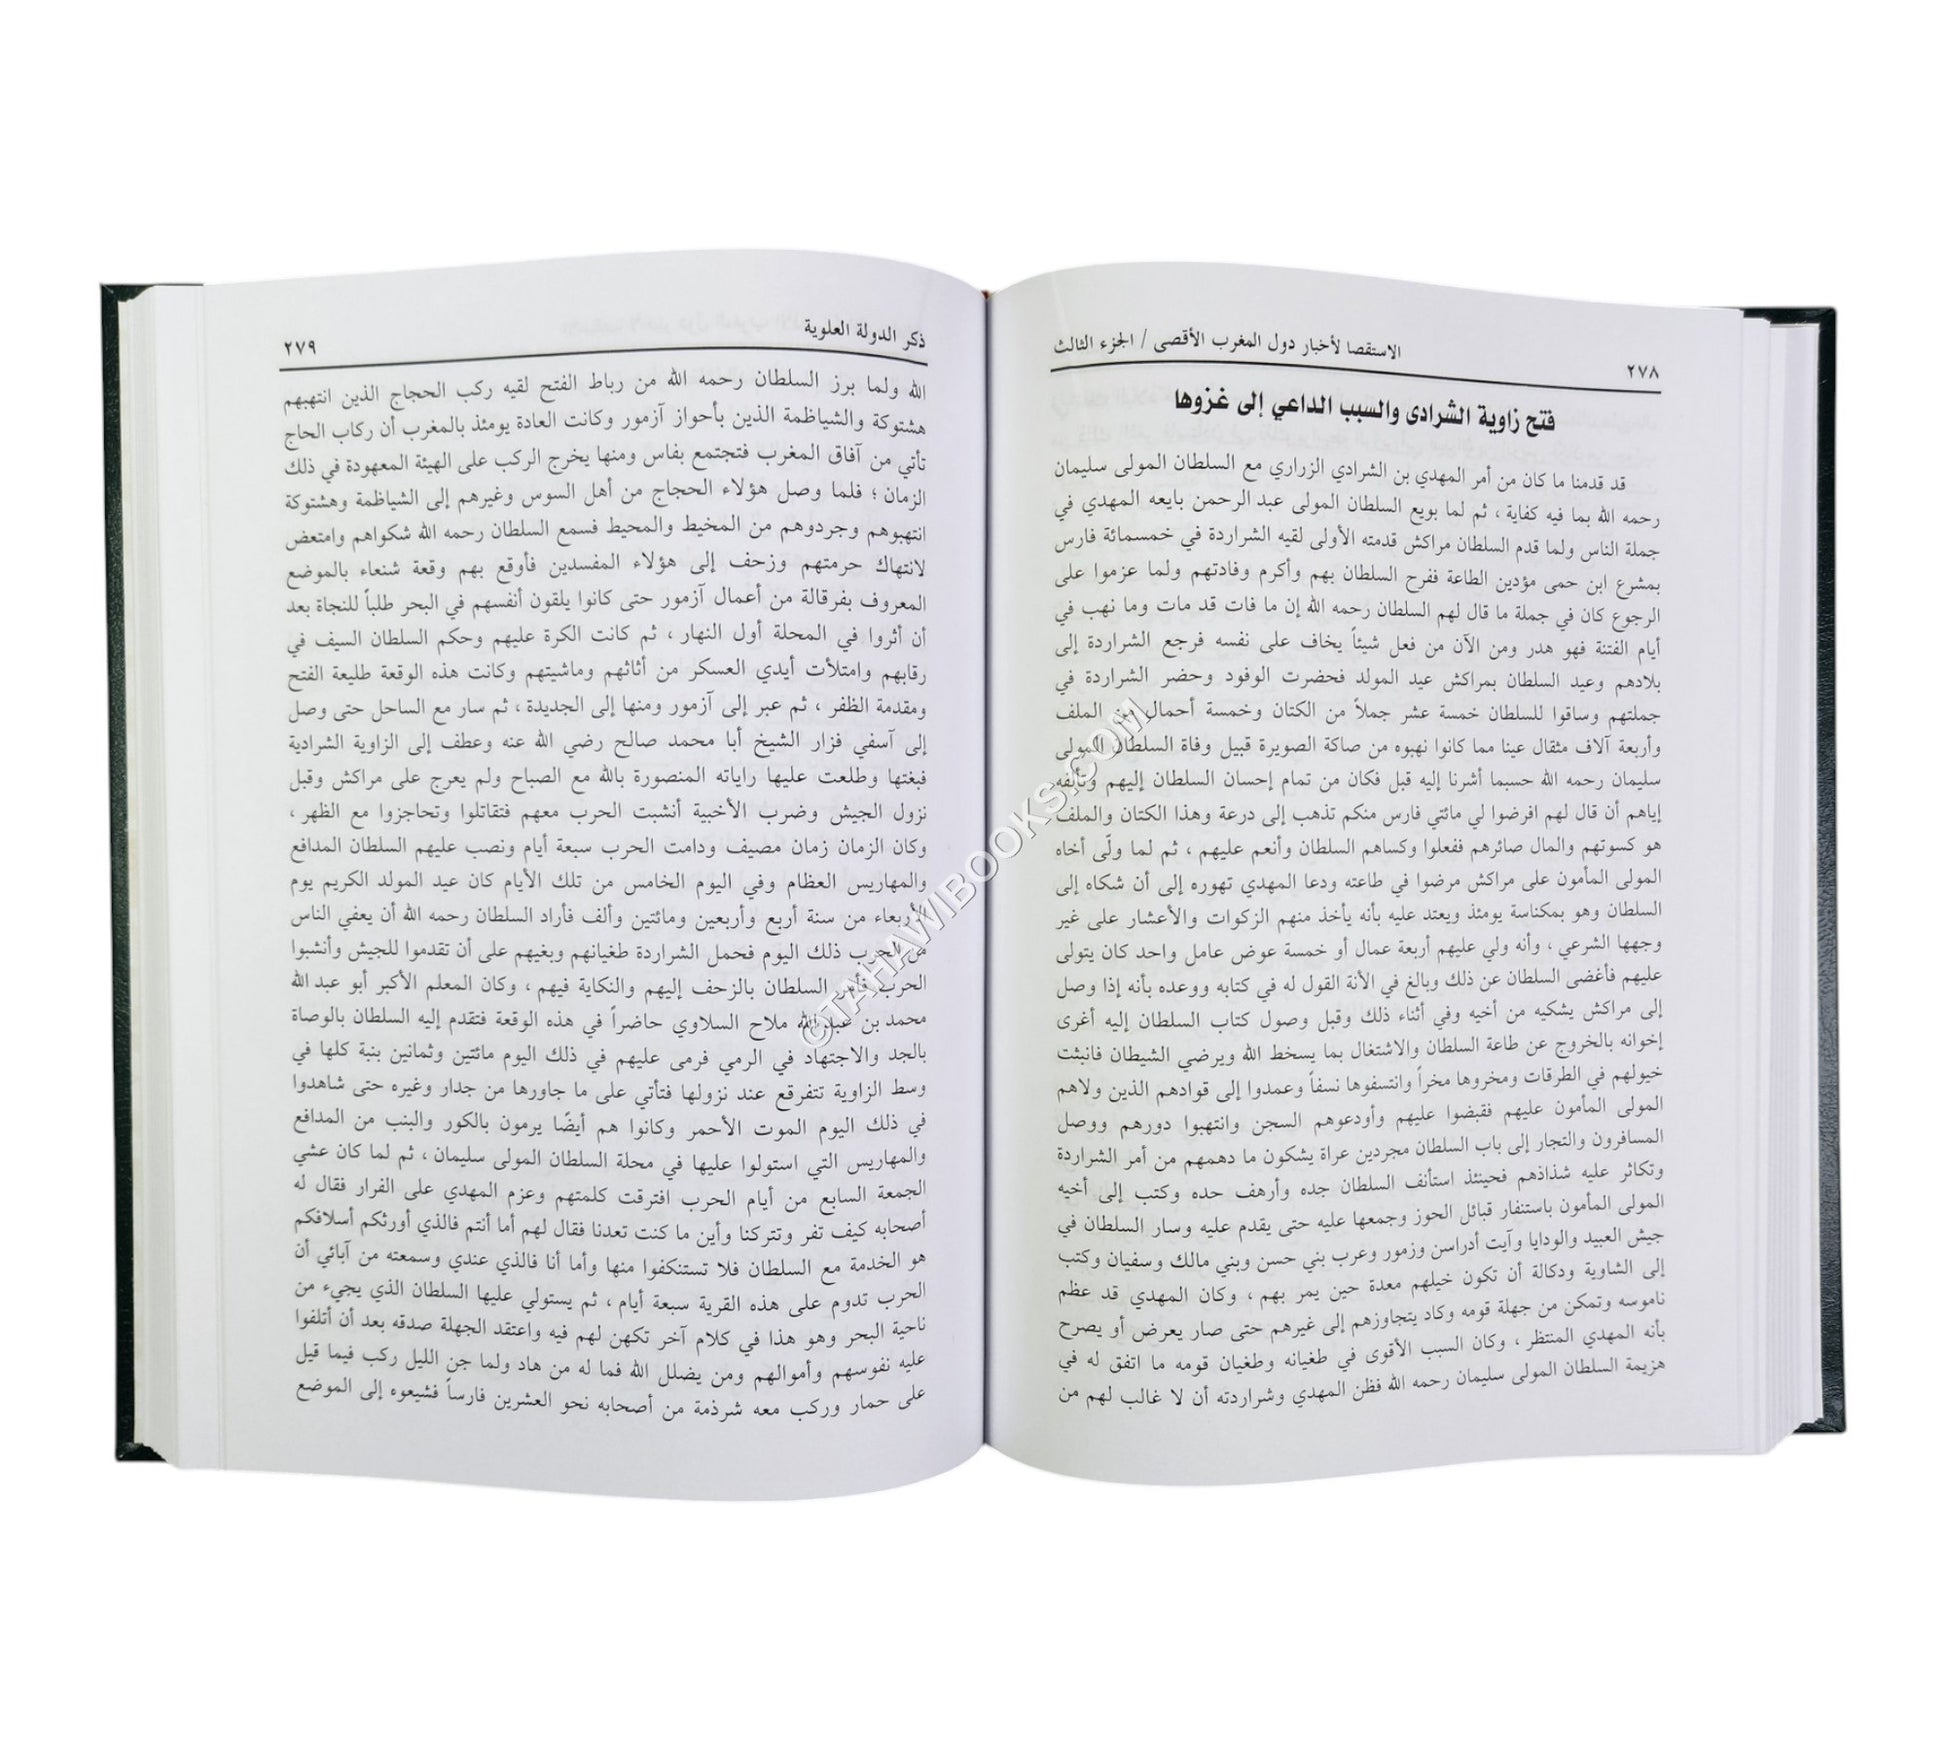 ٢٧٨
الاستقصا لأخبار دول المغرب الأقصى / الجزء الثالث
فتح زاوية الشرادى والسبب الداعي إلى غزوها
قد قدمنا ما كان من أمر المهدي بن الشرادي الزراري مع السلطان المولى سليمان
رحمه الله بما فيه كفاية ، ثم لما بويع السلطان المولى عبد الرحمن بايعه المهدي في
جملة الناس ولما قدم السلطان مراكش قدمته الأولى لقيه الشراردة في خمسمائة فارس
بمشرع ابن حمى مؤدين الطاعة ففرح السلطان بهم وأكرم وفادتهم ولما عزموا على
الرجوع كان في جملة ما قال لهم السلطان رحمه الله إن ما فات قد مات وما نهب في
أيام الفتنة فهو هدر ومن الآن من فعل شيئاً يخاف على نفسه فرجع الشراردة إلى
بلادهم وعيد السلطان بمراكش عيد المولد فحضرت الوفود وحضر الشراردة في
جملتهم وساقوا للسلطان خمسة عشر جملاً من الكتان وخمسة أحمال من الملف
وأربعة آلاف مثقال عينا مما كانوا نهبوه من صاكة الصويرة قبيل وفاة السلطان المولى
سليمان رحمه الله حسبما أشرنا إليه قبل فكان من تمام إحسان السلطان إليهم وتألفه
إياهم أن قال لهم افرضوا لي مائتي فارس منكم تذهب إلى درعة وهذا الكتان والملف
هو كسوتهم والمال صائرهم ففعلوا وكساهم السلطان وأنعم عليهم ، ثم لما ولّى أخاه
المولى المأمون على مراكش مرضوا في طاعته ودعا المهدي تهوره إلى أن شكاه إلى
السلطان وهو بمكناسة يومئذ ويعتد عليه بأنه يأخذ منهم الزكوات والأعشار على غير
وجهها الشرعي ، وأنه ولي عليهم أربعة عمال أو خمسة عوض عامل واحد كان يتولى
عليهم فأغضى السلطان عن ذلك وبالغ في الأنة القول له في كتابه ووعده بأنه إذا وصل
إلى مراكش يشكيه من أخيه وفي أثناء ذلك وقبل وصول كتاب السلطان إليه أغرى
إخوانه بالخروج عن طاعة السلطان والاشتغال بما يسخط الله ويرضي الشيطان فانبثت
خيولهم في الطرقات ومخروها مخراً وانتسفوها نسفاً وعمدوا إلى قوادهم الذين ولاهم
المولى المأمون عليهم فقبضوا عليهم وأودعوهم السجن وانتهبوا دورهم ووصل
المسافرون والتجار إلى باب السلطان مجردين عراة يشكون ما دهمهم من أمر الشراردة
وتكاثر عليه شذاذهم فحينئذ استأنف السلطان جده وأرهف حده وكتب إلى أخيه
المولى المأمون باستنفار قبائل الحوز وجمعها عليه حتى يقدم عليه وسار السلطان في
جيش العبيد والودايا وآيت أدراسن وزمور وعرب بني حسن وبني مالك وسفيان وكتب
إلى الشاوية ودكالة أن تكون خيلهم معدة حين يمر بهم ، وكان المهدي قد عظم
ناموسه وتمكن من جهلة قومه وكاد يتجاوزهم إلى غيرهم حتى صار يعرض أو يصرح
بأنه المهدي المنتظر ، وكان السبب الأقوى في طغيانه وطغيان قومه ما اتفق له في
هزيمة السلطان المولى سليمان رحمه الله فظن المهدي وشراردته أن لا غالب لهم من
ذكر الدولة العلوية
٢٧٩
الله ولما برز السلطان رحمه الله من رباط الفتح لقيه ركب الحجاج الذين انتهبهم
هشتوكة والشياظمة الذين بأحواز آزمور وكانت العادة يومئذ بالمغرب أن ركاب الحاج
تأتي من آفاق المغرب فتجتمع بفاس ومنها يخرج الركب على الهيئة المعهودة في ذلك
الزمان ؛ فلما وصل هؤلاء الحجاج من أهل السوس وغيرهم إلى الشياظمة وهشتوكة
انتهبوهم وجردوهم من المخيط والمحيط فسمع السلطان رحمه الله شكواهم وامتعض
لانتهاك حرمتهم وزحف إلى هؤلاء المفسدين فأوقع بهم وقعة شنعاء بالموضع
المعروف بفرقالة من أعمال آزمور حتى كانوا يلقون أنفسهم في البحر طلباً للنجاة بعد
أن أثروا في المحلة أول النهار ، ثم كانت الكرة عليهم وحكم السلطان السيف في
رقابهم وامتلأت أيدي العسكر من أثاثهم وماشيتهم وكانت هذه الوقعة طليعة الفتح
ومقدمة الظفر ، ثم عبر إلى آزمور ومنها إلى الجديدة ، ثم سار مع الساحل حتى وصل
إلى آسفي فزار الشيخ أبا محمد صالح رضي الله عنه وعطف إلى الزاوية الشرادية
فبغتها وطلعت عليها راياته المنصورة بالله مع الصباح ولم يعرج على مراكش وقبل
نزول الجيش وضرب الأخبية أنشبت الحرب معهم فتقاتلوا وتحاجزوا مع الظهر ،
وكان الزمان زمان مصيف ودامت الحرب سبعة أيام ونصب عليهم السلطان المدافع
والمهاريس العظام وفي اليوم الخامس من تلك الأيام كان عيد المولد الكريم يوم
الأربعاء من سنة أربع وأربعين ومائتين وألف فأراد السلطان رحمه الله أن يعفي الناس
من الحرب ذلك اليوم فحمل الشراردة طغيانهم وبغيهم على أن تقدموا للجيش وأنشبوا
الحرب فأمر السلطان بالزحف إليهم والنكاية فيهم ، وكان المعلم الأكبر أبو عبد الله
محمد بن عبد الله ملاح السلاوي حاضراً في هذه الوقعة فتقدم إليه السلطان بالوصاة
بالجد والاجتهاد في الرمي فرمى عليهم في ذلك اليوم مائتين وثمانين بنبة كلها في
وسط الزاوية تتفرقع عند نزولها فتأتي على ما جاورها من جدار وغيره حتى شاهدوا
في ذلك اليوم الموت الأحمر وكانوا هم أيضًا يرمون بالكور والبنب من المدافع
والمهاريس التي استولوا عليها في محلة السلطان المولى سليمان ، ثم لما كان عشي
الجمعة السابع من أيام الحرب افترقت كلمتهم وعزم المهدي على الفرار فقال له
أصحابه كيف تفر وتتركنا وأين ما كنت تعدنا فقال لهم أما أنتم فالذي أورثكم أسلافكم
هو الخدمة مع السلطان فلا تستنكفوا منها وأما أنا فالذي عندي وسمعته من آبائي أن
الحرب تدوم على هذه القرية سبعة أيام ، ثم يستولي عليها السلطان الذي يجيء من
ناحية البحر وهو هذا في كلام آخر تكهن لهم فيه واعتقد الجهلة صدقه بعد أن أتلفوا
عليه نفوسهم وأموالهم ومن يضلل الله فما له من هاد ولما جن الليل ركب فيما قيل
على حمار وركب معه شرذمة من أصحابه نحو العشرين فارساً فشيعوه إلى الموضع
©TAHAWIBOOKS.COM